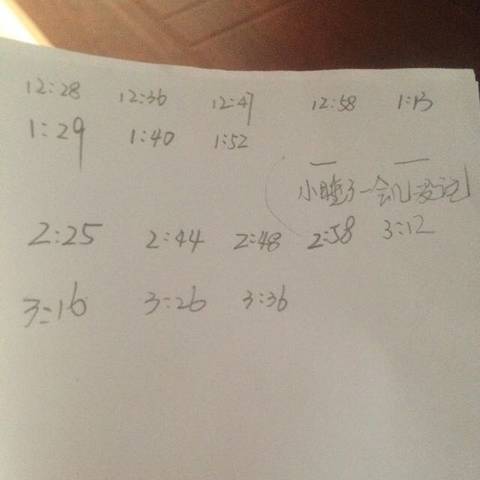 12:28 12:36 12:47 12:58 1:13
1:29 1:40 1:52
小睡了一会儿没记
2:25 2:44 2:48 2:58 3:12
3:16 3:26 3:36